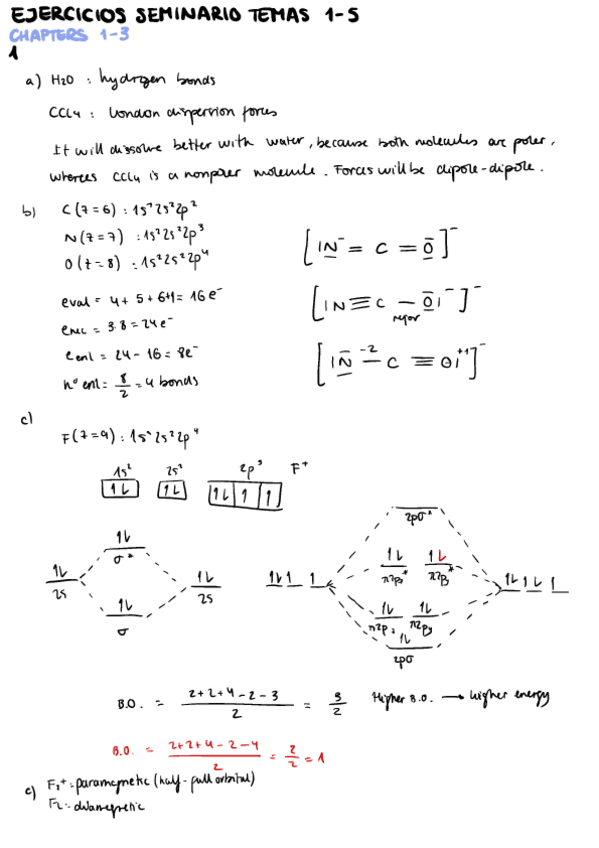 EJERCICIOS SEMINARIO TEMAS 1-5
CHAPTERS 1-3
1
a) H2O : hydrogen bonds
CCl4 : London dispersion forces
It will dissolve better with water, because both molecules are polar,
whereas CCl4 is a nonpolar molecule. Forces will be dipole-dipole.
b) C (z=6) : 1s² 2s² 2p²
N (z=7) : 1s² 2s² 2p³
O (z=8) : 1s² 2s² 2p⁴
eval = 4+ 5 + 6+1 = 16 e⁻
eNL = 3·8 = 24 e⁻
eenl = 24 - 16 = 8e⁻
nº enl = 8/2 = 4 bonds
[ |N⁻ = C = O ]⁻
[ |N ≡ C - O|⁻ ]⁻
mejor
[ |N ⁻² - C ≡ O| ⁺¹ ]⁻
c)
F (z=9) : 1s² 2s² 2p⁴
1s² 2s² 2p³ F⁺
2pσ*
σ* π2p* π2p*
2s 2s
σ π2p π2py
2pσ
B.O. = 2+2+4-2-3 / 2 = 3/2 Higher B.O. → higher energy
B.O. = 2+2+4-2-4 / 2 = 2/2 = 1
c) F2⁺: paramagnetic (half-full orbital)
F2: diamagnetic